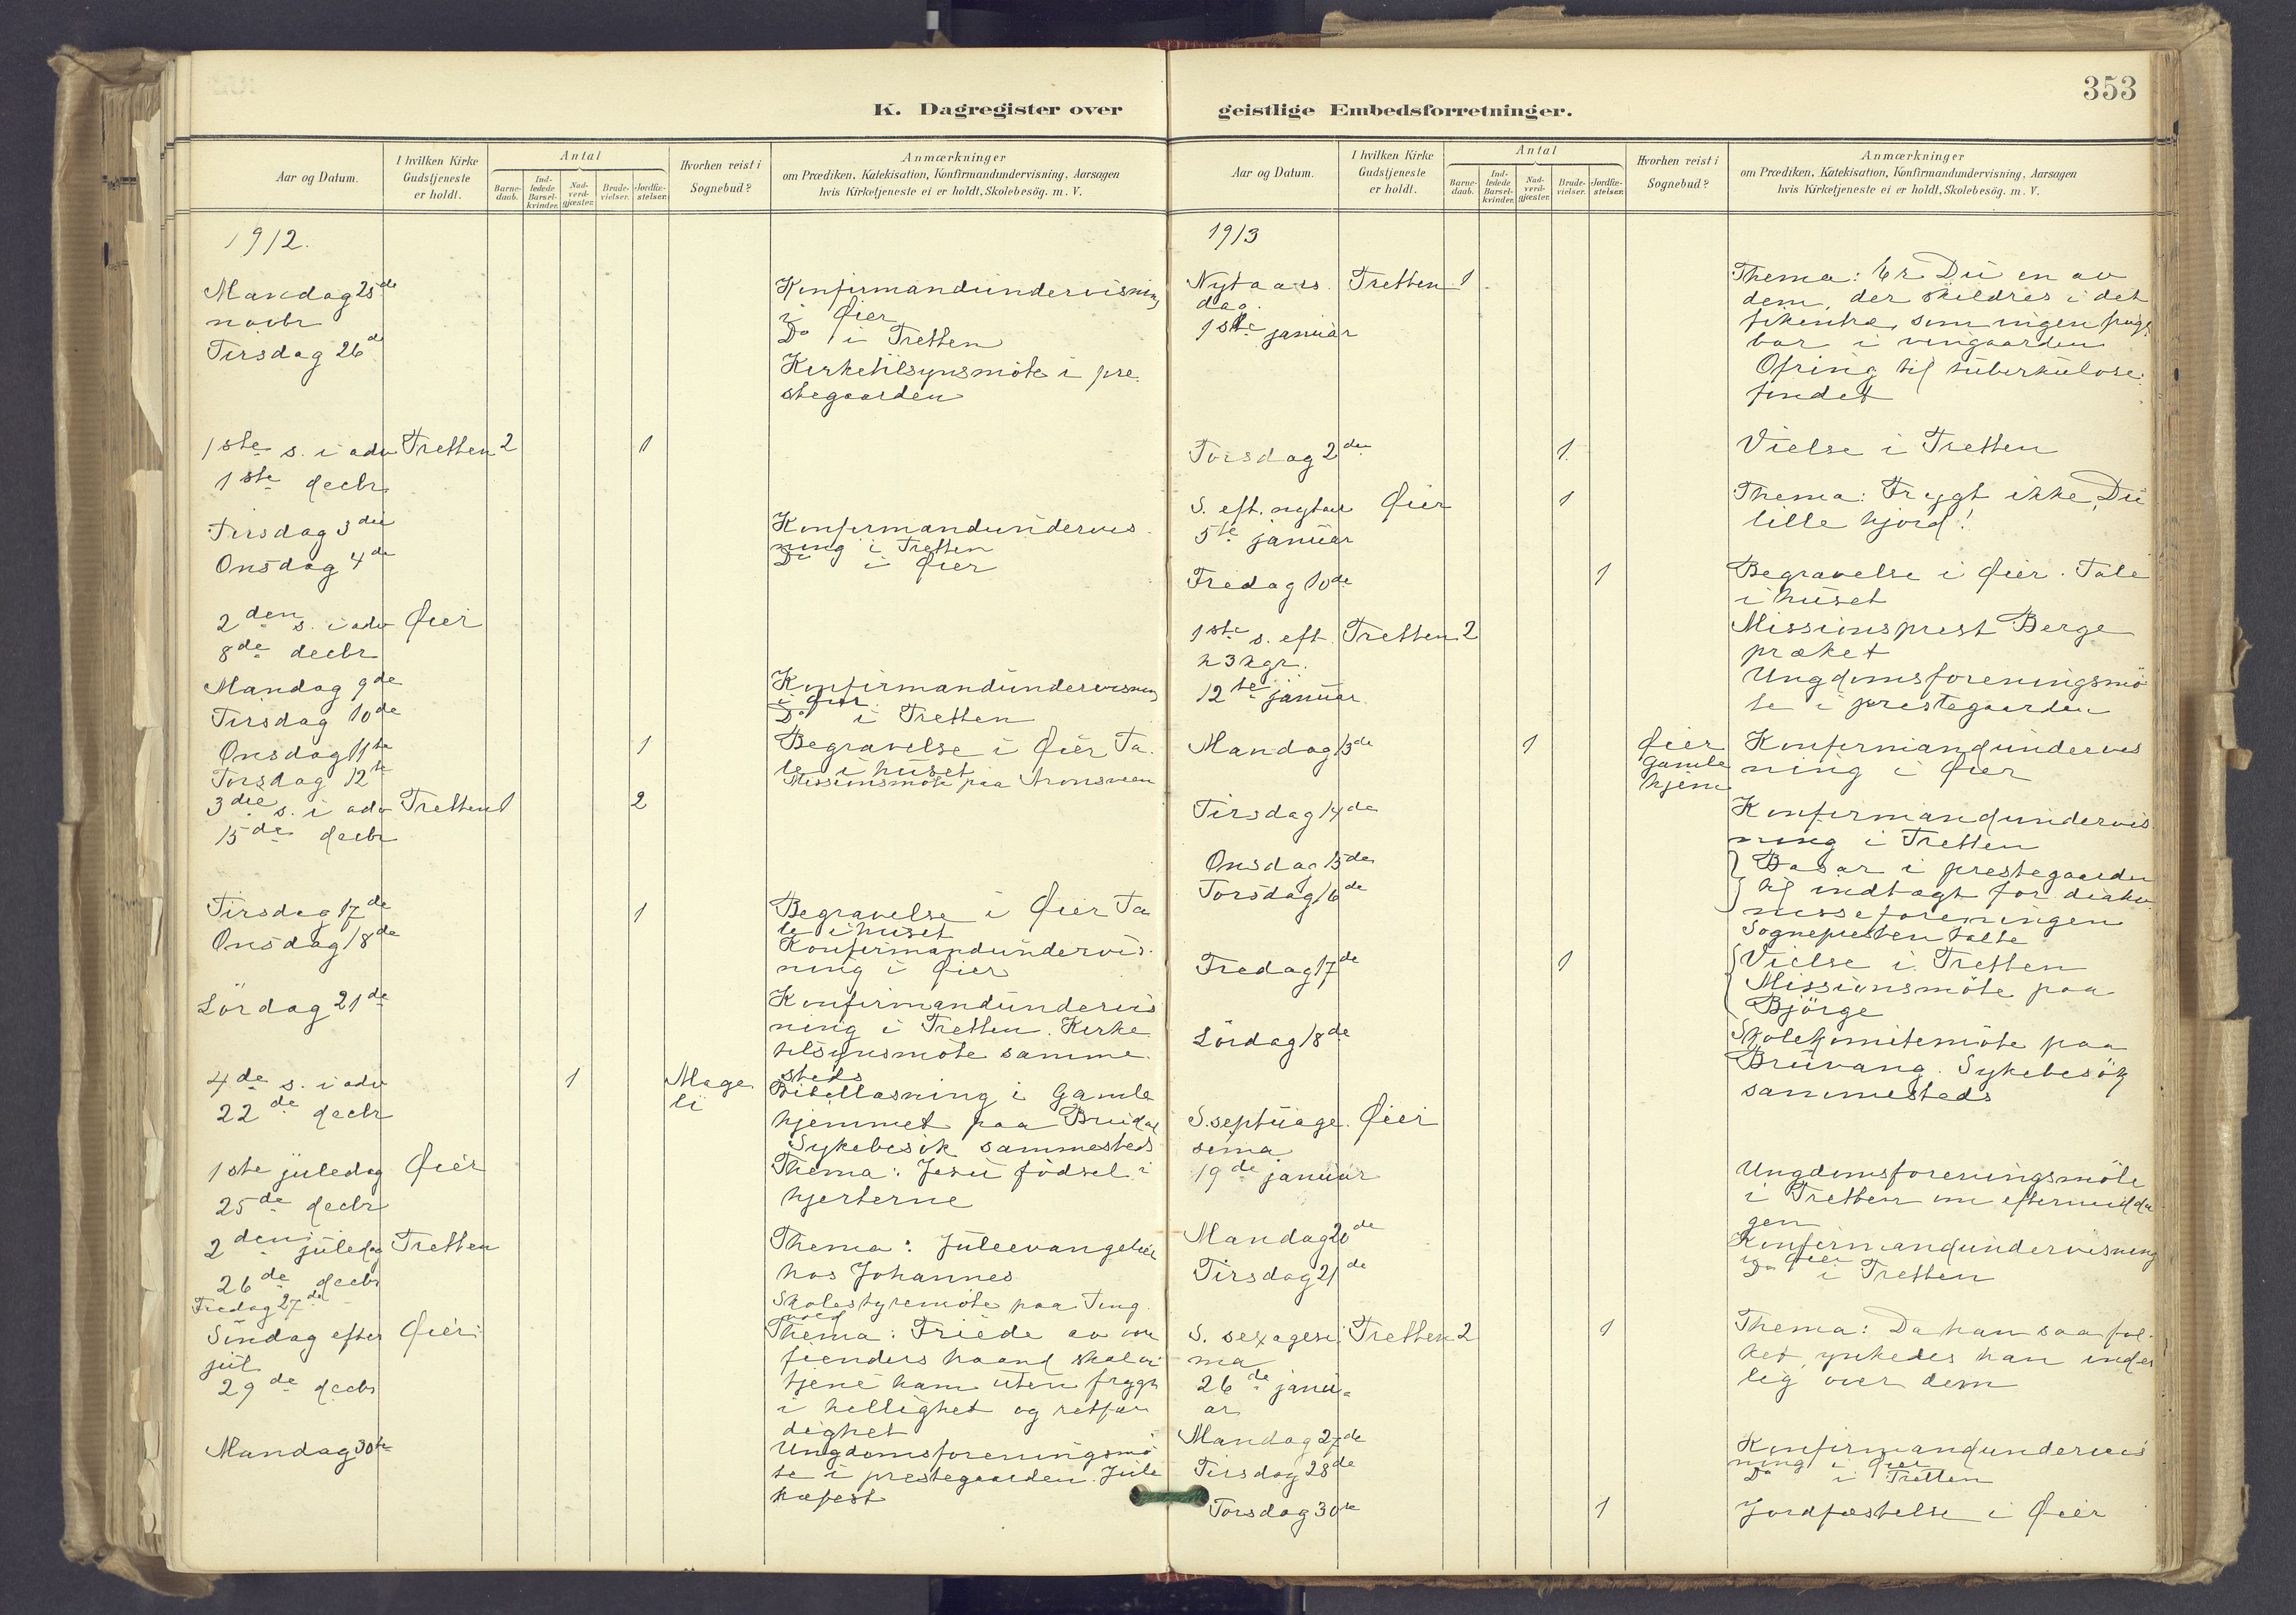 353
K. Dagregister over
Aar og Datum.
I hvilken Kirke
Gudstjeneste
er holdt.
Antal
Barne-
daab.
Ind-
ledede
Barsel-
kvinder.
Nad-
verd-
gjæster.
Brude-
vielser.
Jordfæ-
stelser.
Hvorhen reist i
Sognebud?
Anmærkninger
om Prædiken, Katekisation, Konfirmandundervisning, Aarsagen
hvis Kirketjeneste ei er holdt, Skolebesög. m. V.
1912.
Mandag 25de
novbr
Konfirmandundervisning
i Øier
Tirsdag 26d
Do i Tretten
Kirketilsynsmöte i pre
stegaarden
1ste s. i adv Tretten 2 1
1ste decbr
Tirsdag 3die
Konfirmandundervis
ning i Tretten
Onsdag 4de
Do i Øier
2den s. i adv Øier
8de decbr
Mandag 9de
Konfirmandundervisning
i Øier
Tirsdag 10de
Do i Tretten
Onsdag 11te 1 Begravelse i Øier Ta
le i huset
Torsdag 12te Missionsmöte paa Aronsveen
3die s. i adv Tretten 1 2
15de decbr
Tirsdag 17de 1 Begravelse i Øier Ta
le i huset
Onsdag 18de
Konfirmandundervis
ning i Øier
Lördag 21de
Konfirmandundervis
ning i Tretten. Kirke
tilsynsmöte samme
steds
4de s. i adv 1 Mage
li
22de decbr
Bibellæsning i Gamle
hjemmet paa
Sykebesök sammesteds
1ste juledag Øier
25de decbr
Thema: Jesu födsel i
hjerterne
2den juledag Tretten
26de decbr
Thema: Juleevangeliet
hos Johannes
Fredag 27de Skolestyremöte paa Ting
Söndag efter Øier
jul
29de decbr
Thema: Friede av vore
fienders haand skal vi
tjene ham uten frygt
i hellighet og retfær
dighet
Mandag 30te
Ungdomsforeningsmö
te i prestegaarden. Jule
geistlige Embedsforretninger.
Aar og Datum.
I hvilken Kirke
Gudstjeneste
er holdt.
Antal
Barne-
daab.
Ind-
ledede
Barsel-
kvinder.
Nad-
verd-
gjæster.
Brude-
vielser.
Jordfæ-
stelser.
Hvorhen reist i
Sognebud?
Anmærkninger
om Prædiken, Katekisation, Konfirmandundervisning, Aarsagen
hvis Kirketjeneste ei er holdt, Skolebesög. m. V.
1913
Nytaars Tretten 1
dag.
1ste januar
Thema: Er Du en av
dem, der skildres i det
fikentræ, som ingen frugt
bar i vingaarden
Ofring til tuberkulose
fondet
Torsdag 2den 1 Vielse i Tretten
S. eft. nytaar Øier 1
5te januar
Thema: Frygt ikke, Du
lille hjord!
Fredag 10de 1 Begravelse i Øier. Tale
i huset
1ste s. eft Tretten 2
h 3 kgr.
12te januar
Missionsprest Berge
præket
Ungdomsforeningsmö
te i prestegaarden
Mandag 13de 1 Øier
Gamle
hjem
Konfirmandundervis
ning i Øier
Tirsdag 14de
Konfirmandundervis
ning i Tretten
Onsdag 15de
Torsdag 16de
Basar i prestegaarden
til indtægt for diako
nisseforeningen
Sognepresten talte
Fredag 17de 1 Vielse i Tretten
Missionsmöte paa
Björge
Lördag 18de
Skolekomitemöte paa
Bruvang. Sykebesök
sammesteds
S. septuage Øier
sima
19de januar
Ungdomsforeningsmöte
i Tretten om eftermidda
gen
Mandag 20de
Konfirmandundervisning
i Øier
Tirsdag 21de
Do i Tretten
S. sexagesi Tretten 2 1
ma
26de janu
ar
Thema: Da han saa fol
ket, ynkedes han inder
lig over dem
Mandag 27de
Konfirmandundervis
ning i Øier
Tirsdag 28de
Do i Tretten
Torsdag 30te 1 Jordfæstelse i Øier